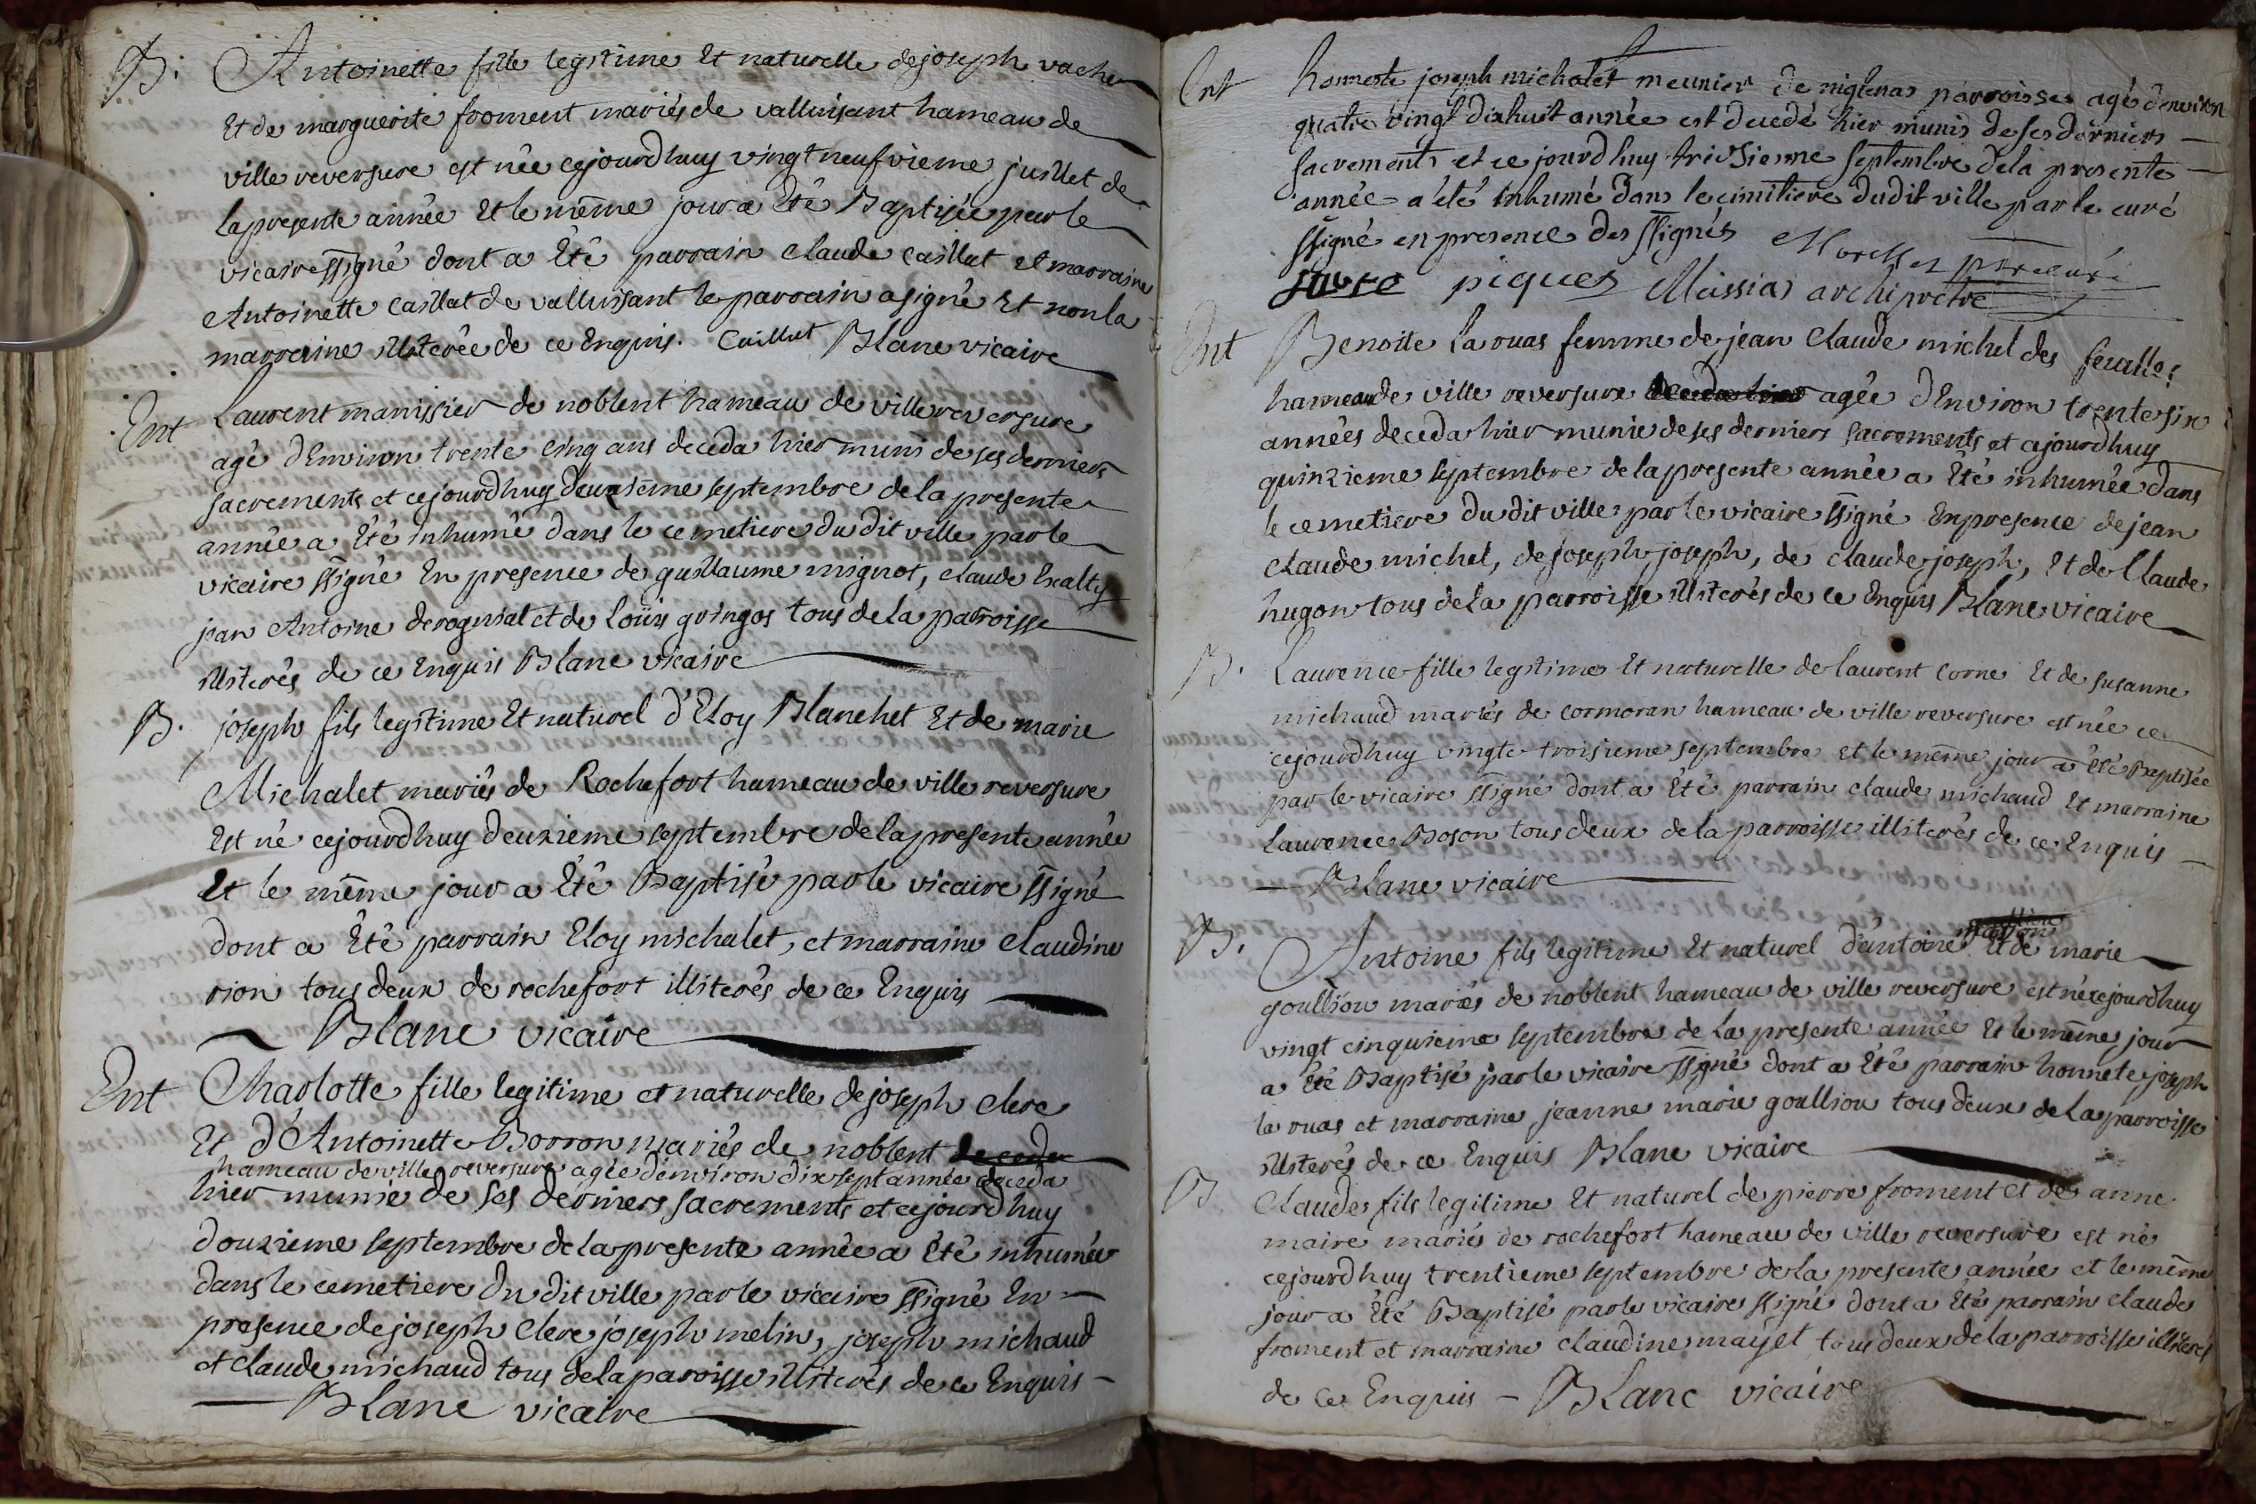 B. Antoinette fille legitime Et naturelle de joseph vacher
Et de marguerite froment mariés de valluisant hameau de
ville reversure est née cejourdhuy vingt neufvieme juillet de
la presente année Et le même jour a Eté Baptisée par le
vicaire ssigné dont a Eté parrain claude caillat et marraine
Antoinette caillat de valluisant le parrain a signé Et non la
marraine illiterée de ce Enquis. Caillat Blanc vicaire
Ent Laurent manissier de noblent hameau de ville reversure
agé d'Environ trente cinq ans deceda hier muni de ses derniers
sacrements et cejourdhuy deuxieme septembre de la presente
année a Eté inhumé dans le cemetiere du dit ville par le
vicaire ssigné En presence de guillaume mignot, claude
jean Antoine derognat et de Loüis gringos tous de la parroisse
illiterés de ce Enquis Blanc vicaire
B. joseph fils legitime Et naturel d'Eloy Blanchet Et de marie
Michalet mariés de Rochefort hameau de ville reversure
Est né cejourdhuy deuxieme septembre de la presente année
Et le même jour a Eté Baptisé par le vicaire ssigné
dont a Eté parrain Eloy michalet, et marraine claudine
rion tous deux de rochefort illiterés de ce Enquis
Blanc vicaire
Ent Charlotte fille legitime et naturelle de joseph clerc
Et d'Antoinette Borron mariés de noblent deceda
hameau de ville reversure agée d'environ dix sept année deceda
hier munie de ses derniers sacrements et cejourdhuy
douzieme septembre de la presente année a Eté inhumée
dans le cemetiere du dit ville par le vicaire ssigné En
presence de joseph clerc joseph melin, joseph michaud
et claude michaud tous de la paroisse illiterés de ce Enquis
Blanc vicaire
Ent honneste joseph michalet meunier de niglena parroisse agé d'environ
quatre vingt dix huit année est decedé hier munis de ses derniers
sacrements et ce jourdhuy treisieme septembre de la presente
année a été inhumé dans le cimitiere dudit ville par le curé
ssigné en presence des ssignés curé
favre piquet Meissias archiprêtre
Ent Benoite Laruas femme de jean claude michel des feuilles
hameau de ville reversure deceda hier agée d'Environ trente six
années deceda hier munie de ses derniers sacrements et cejourdhuy
quinzieme septembre de la presente année a Eté inhumée dans
le cemetiere du dit ville par le vicaire ssigné En presence de jean
claude michel, de joseph joseph, de claude joseph, Et de Claude
hugon tous de la parroisse illiterés de ce Enquis Blanc vicaire
B. Laurence fille legitime Et naturelle de laurent corne Et de susanne
michaud mariés de cormoran hameau de ville reversure est née ce
cejourdhuy vingte troisieme septembre et le même jour a Eté Baptisée
par le vicaire ssigné dont a Eté parrain claude michaud Et marraine
Laurence Boson tous deux de la parroisse illiterés de ce Enquis
Blanc vicaire
B. Antoine fils legitime Et naturel d'antoine Et de marie
goullion mariés de noblent hameau de ville reversure est né cejourdhuy
vingt cinquieme septembre de la presente année Et le même jour
a Eté Baptisé par le vicaire ssigné dont a Eté parrain honnete joseph
la ruas et marraine jeanne marie goullion tous deux de la parroisse
illiterés de ce Enquis Blanc vicaire
B Claude fils legitime Et naturel de pierre froment et de anne
maire mariés de rochefort hameau de ville reversure est né
cejourdhuy trentieme septembre de la presente année et le même
jour a Eté Baptisé par le vicaire ssigné dont a Eté parrain claude
froment et marraine claudine mayet tous deux de la parroisse illiterés
de ce Enquis - Blanc vicaire